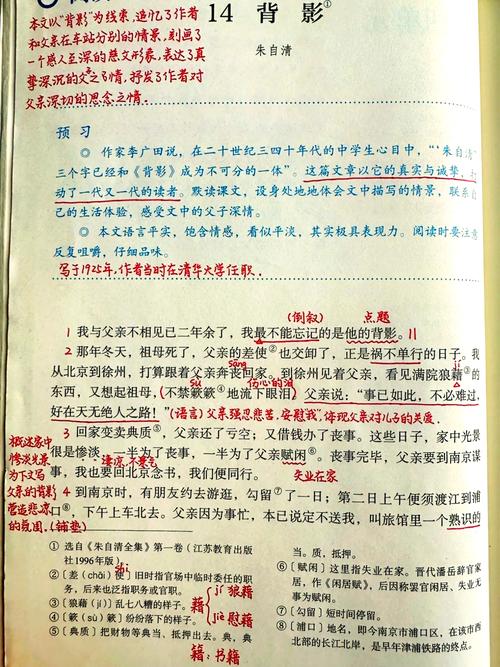 14 背影①
朱自清
本文以"背影"为线索,追忆了作者
和父亲在车站分别的情景,刻画了
一个感人至深的慈父形象,表达了真
挚深沉的父子情,抒发了作者对
父亲深切的思念之情.
预习
◎ 作家李广田说,在二十世纪三四十年代的中学生心目中,“‘朱自清’
三个字已经和《背影》成为不可分的一体”。这篇文章以它的真实与诚挚,打
动了一代又一代的读者。默读课文,设身处地地体会文中描写的情景,联系自
己的生活体验,感受文中的父子深情。
◎ 本文语言平实,饱含情感,看似平淡,其实极具表现力。阅读时要注意
反复咀嚼,仔细品味。
写于1925年,作者当时在清华大学任职.
(倒叙) 点题
1 我与父亲不相见已二年余了,我最不能忘记的是他的背影。||
2 那年冬天,祖母死了,父亲的差使②也交卸了,正是祸不单行的日子。我
sāng jí
从北京到徐州,打算跟着父亲奔丧回家。到徐州见着父亲,看见满院狼藉③的
sù 伤心的泪
东西,又想起祖母,(不禁簌簌④地流下眼泪)父亲说:“事已如此,不必难过,
好在天无绝人之路!”(语言)父亲强忍悲苦,安慰我",体现父亲对儿子的关爱.
3 回家变卖典质⑤,父亲还了亏空;又借钱办了丧事。这些日子,家中光景
很是惨淡,一半为了丧事,一半为了父亲赋闲⑥。丧事完毕,父亲要到南京谋
凄凉,不景气 失业在家
事,我也要回北京念书,我们便同行。
概述家中
惨淡光景
为下文写
父亲的背影
营造悲凉
的氛围.(铺垫)
4 到南京时,有朋友约去游逛,勾留⑦了一日;第二日上午便须渡江到浦
口⑧,下午上车北去。父亲因为事忙,本已说定不送我,叫旅馆里一个熟识的
① 选自《朱自清全集》第一卷(江苏教育出版
社1996年版)。
② 〔差(chāi)使〕旧时指官场中临时委任的职
shi
务,后来也泛指职务或官职。
③ 〔狼藉(jí)〕乱七八糟的样子。
④ 〔簌(sù)簌〕纷纷落下的样子。
⑤ 〔典质〕把财物等典当、抵押出去。典,典
藉 jí 狼藉
jiè 慰藉
籍:书籍
当。质,抵押。
⑥ 〔赋闲〕这里指失业在家。晋代潘岳辞官家
居,作《闲居赋》,后因称罢官闲居、失业无
事为赋闲。
⑦ 〔勾留〕短时间停留。
⑧ 〔浦口〕地名,即今南京市浦口区,在该市西
北部的长江北岸,是早年津浦铁路的终点。